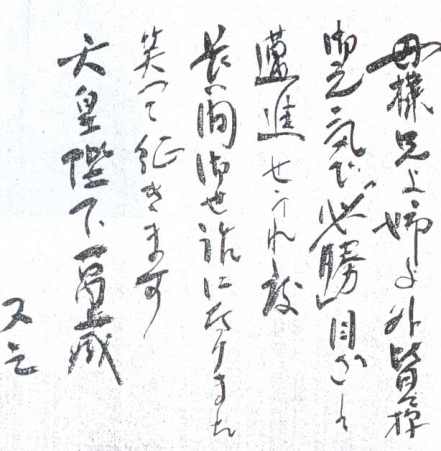 母様兄上姉上外皆々様
御元気で必勝目ざして
邁進せられ度
長い間御世話になりました
笑って征きます
天皇陛下万歳
又三